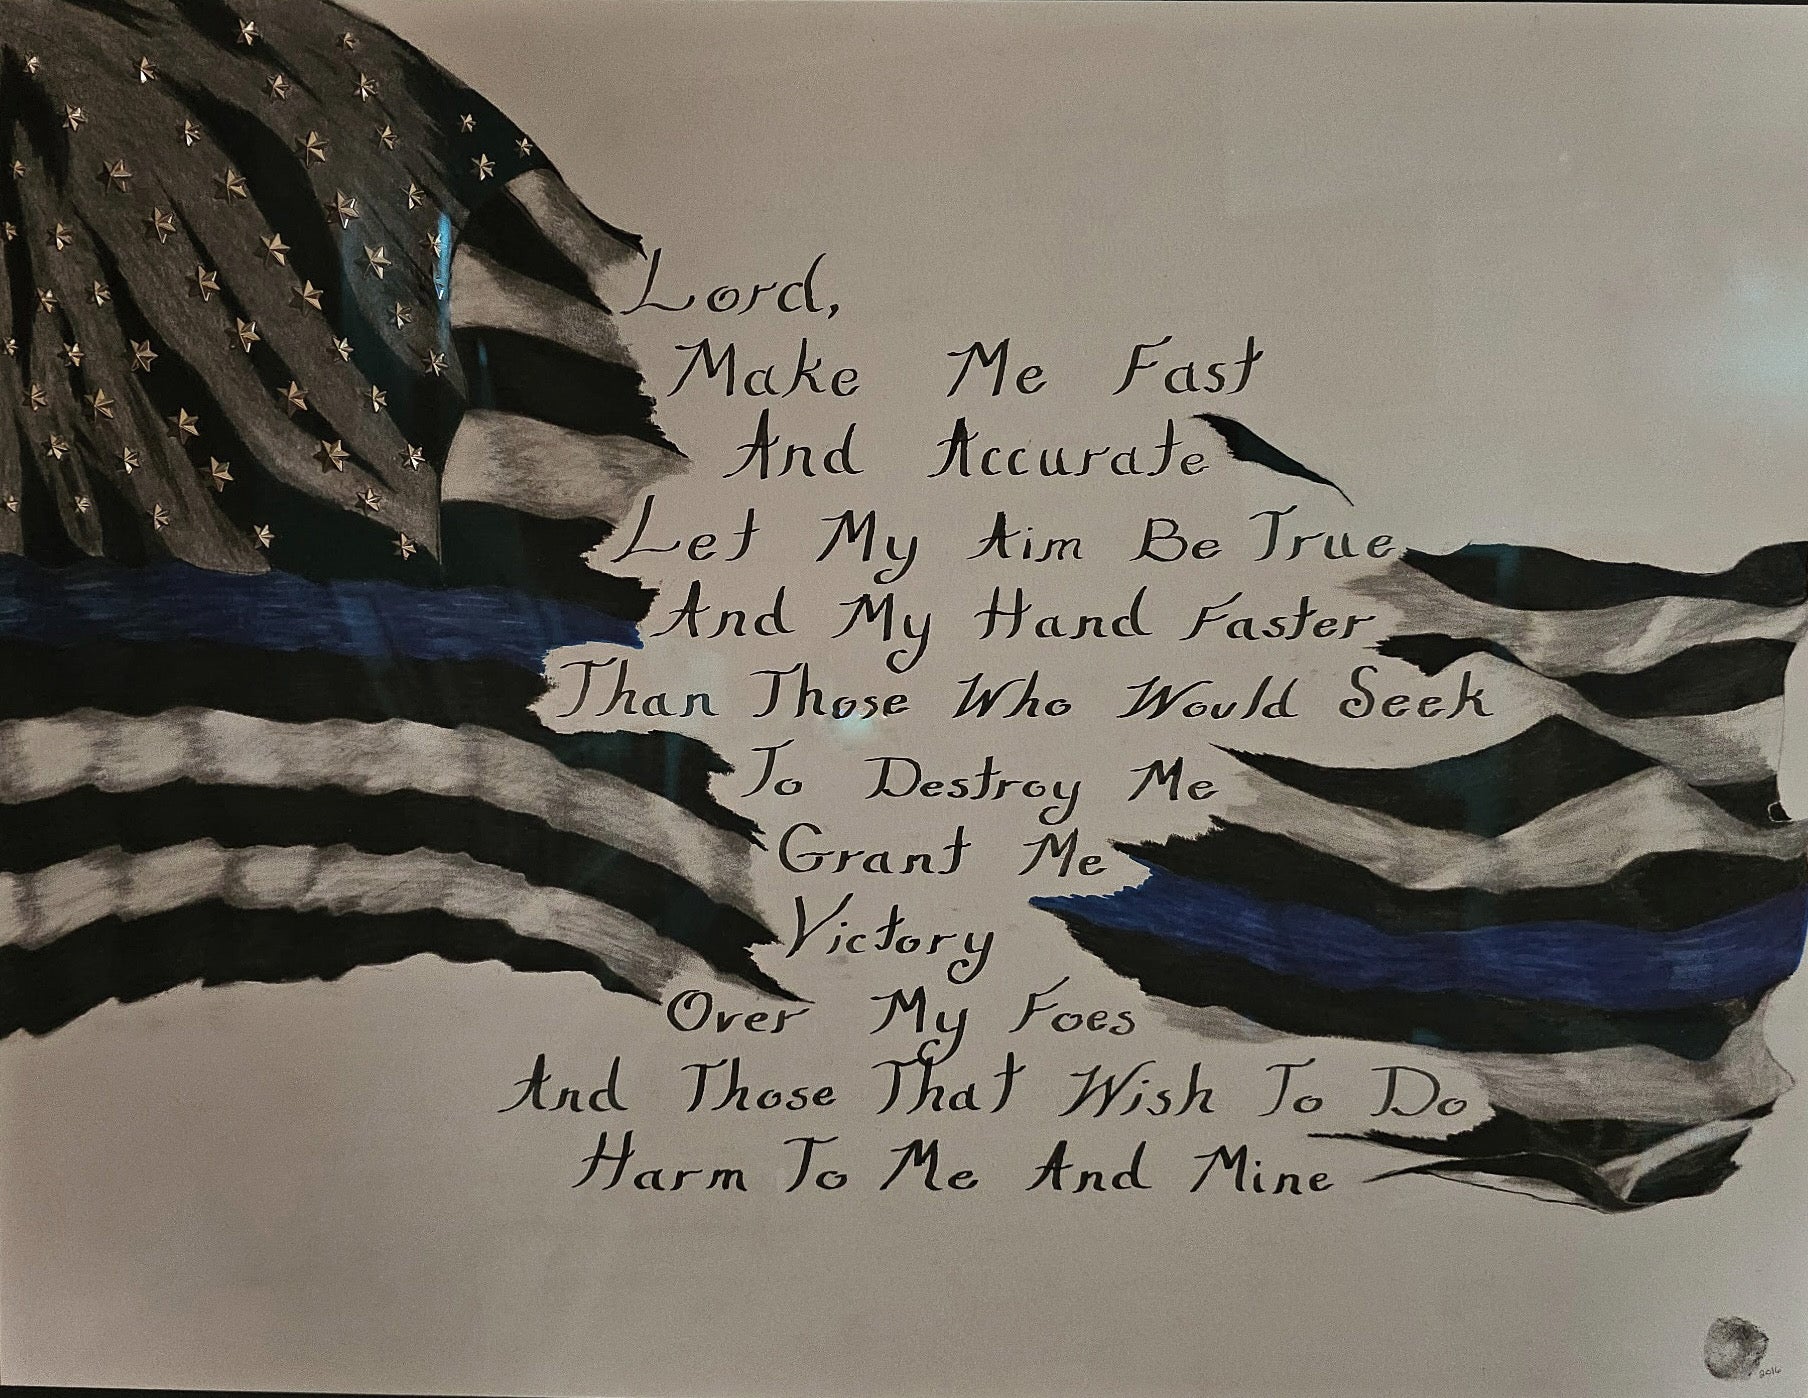 Lord,
Make Me Fast
And Accurate
Let My Aim Be True
And My Hand Faster
Than Those Who Would Seek
To Destroy Me
Grant Me
Victory
Over My Foes
And Those That Wish To Do
Harm To Me And Mine
2016